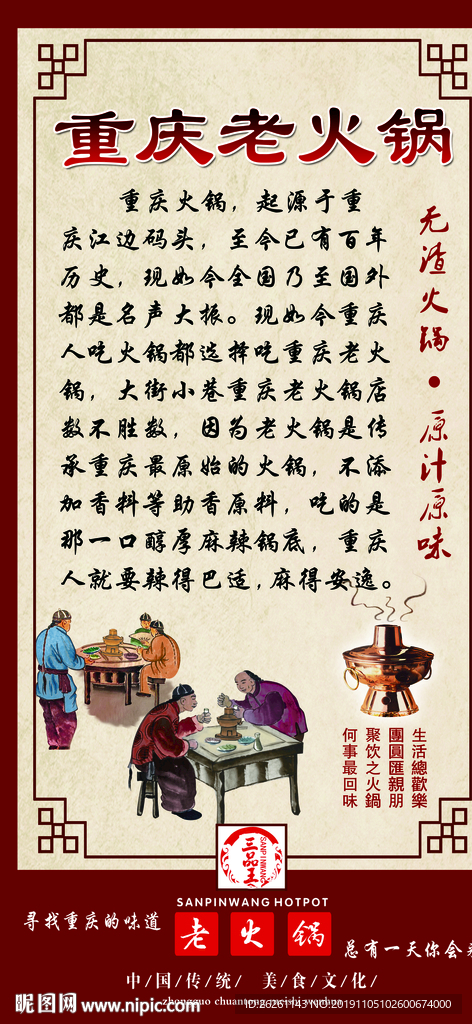 重庆老火锅
重庆火锅，起源于重
庆江边码头，至今已有百年
历史，现如今全国乃至国外
都是名声大振。现如今重庆
人吃火锅都选择吃重庆老火
锅，大街小巷重庆老火锅店
数不胜数，因为老火锅是传
承重庆最原始的火锅，不添
加香料等助香原料，吃的是
那一口醇厚麻辣锅底，重庆
人就要辣得巴适，麻得安逸。
无渣火锅·原汁原味
生活總歡樂
團圓匯親朋
聚饮之火鍋
何事最回味
三品王
SANPINWANG
SANPINWANG HOTPOT
寻找重庆的味道
老火锅
总有一天你会来
中/国/传/统/ 美/食/文/化/
zhongguo chuantong meishi wenhua
昵图网 www.nipic.com
ID:26261143 NO:20191105102600674000